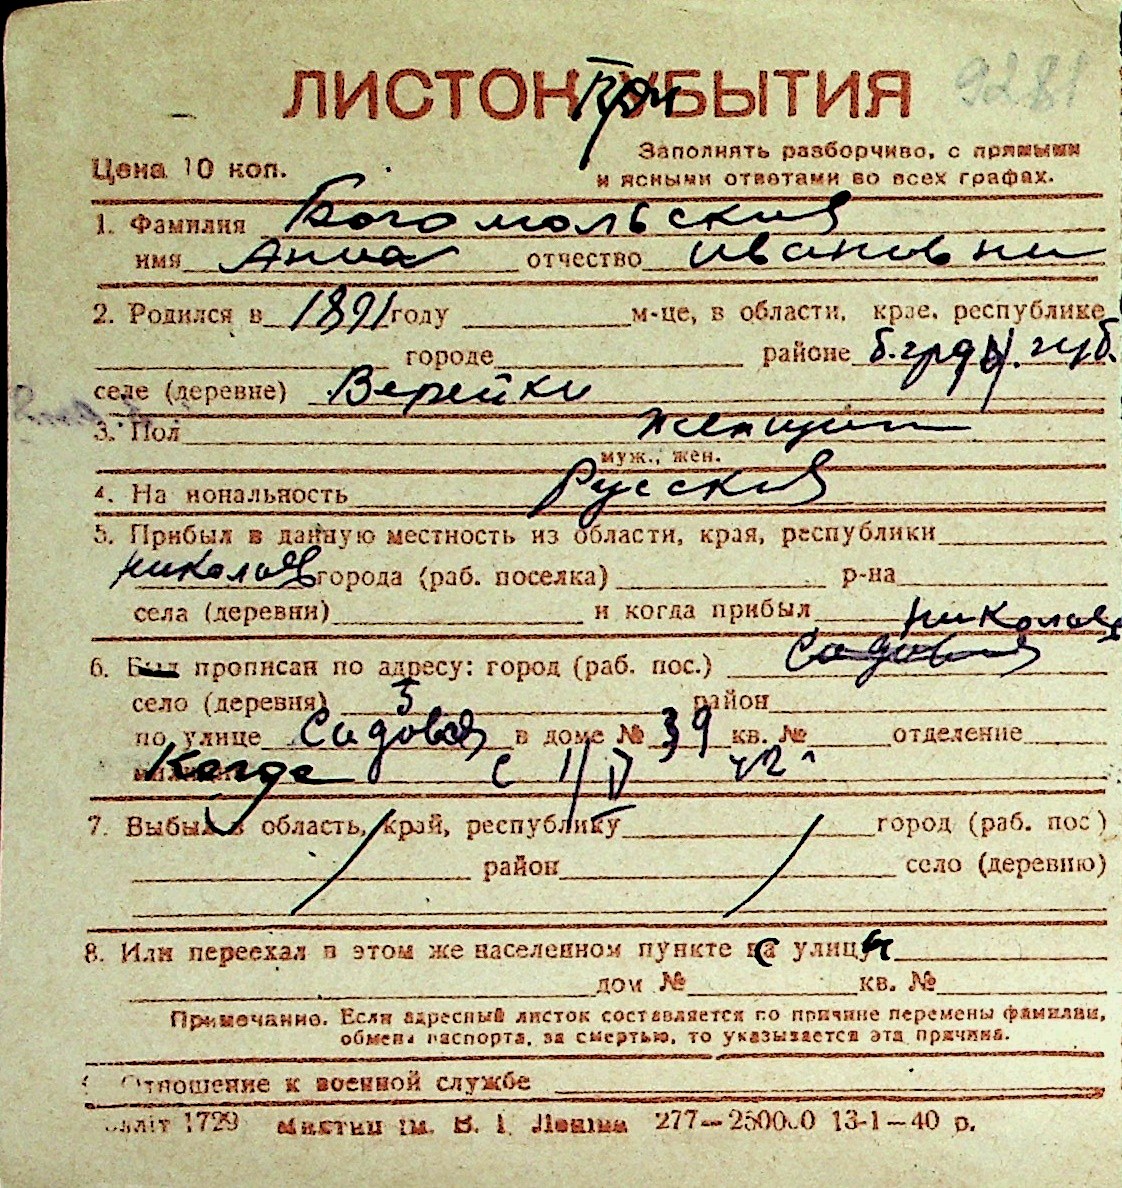 ЛИСТОК УБЫТИЯ
При
9281
Цена 10 коп.
Заполнять разборчиво, с прямыми
и ясными ответами во всех графах.
1. Фамилия Богомольская
имя Анна отчество Ивановна
2. Родился в 1891 году м-це, в области, крае, республике
городе районе губ.
селе (деревне) Верейки
3. Пол женщин
муж., жен.
4. На иональность Русская
5. Прибыл в данную местность из области, края, республики
Николаев города (раб. поселка) р-на
села (деревни) и когда прибыл
6. Был прописан по адресу: город (раб. пос.) Николаев
Садовая
село (деревня) район
5
по улице Садовая в доме № 39 кв. № отделение
Когда с 1/IV 42 г
7. Выбыл в область, край, республику город (раб. пос)
район село (деревню)
8. Или переехал в этом же населенном пункте с улицы
дом № кв. №
Примечание. Если адресный листок составляется по причине перемены фамилии,
обмена паспорта, за смертью, то указывается эта причина.
Отношение к военной службе
1729 ім. В. І. Леніна 277—250000 13-1—40 р.